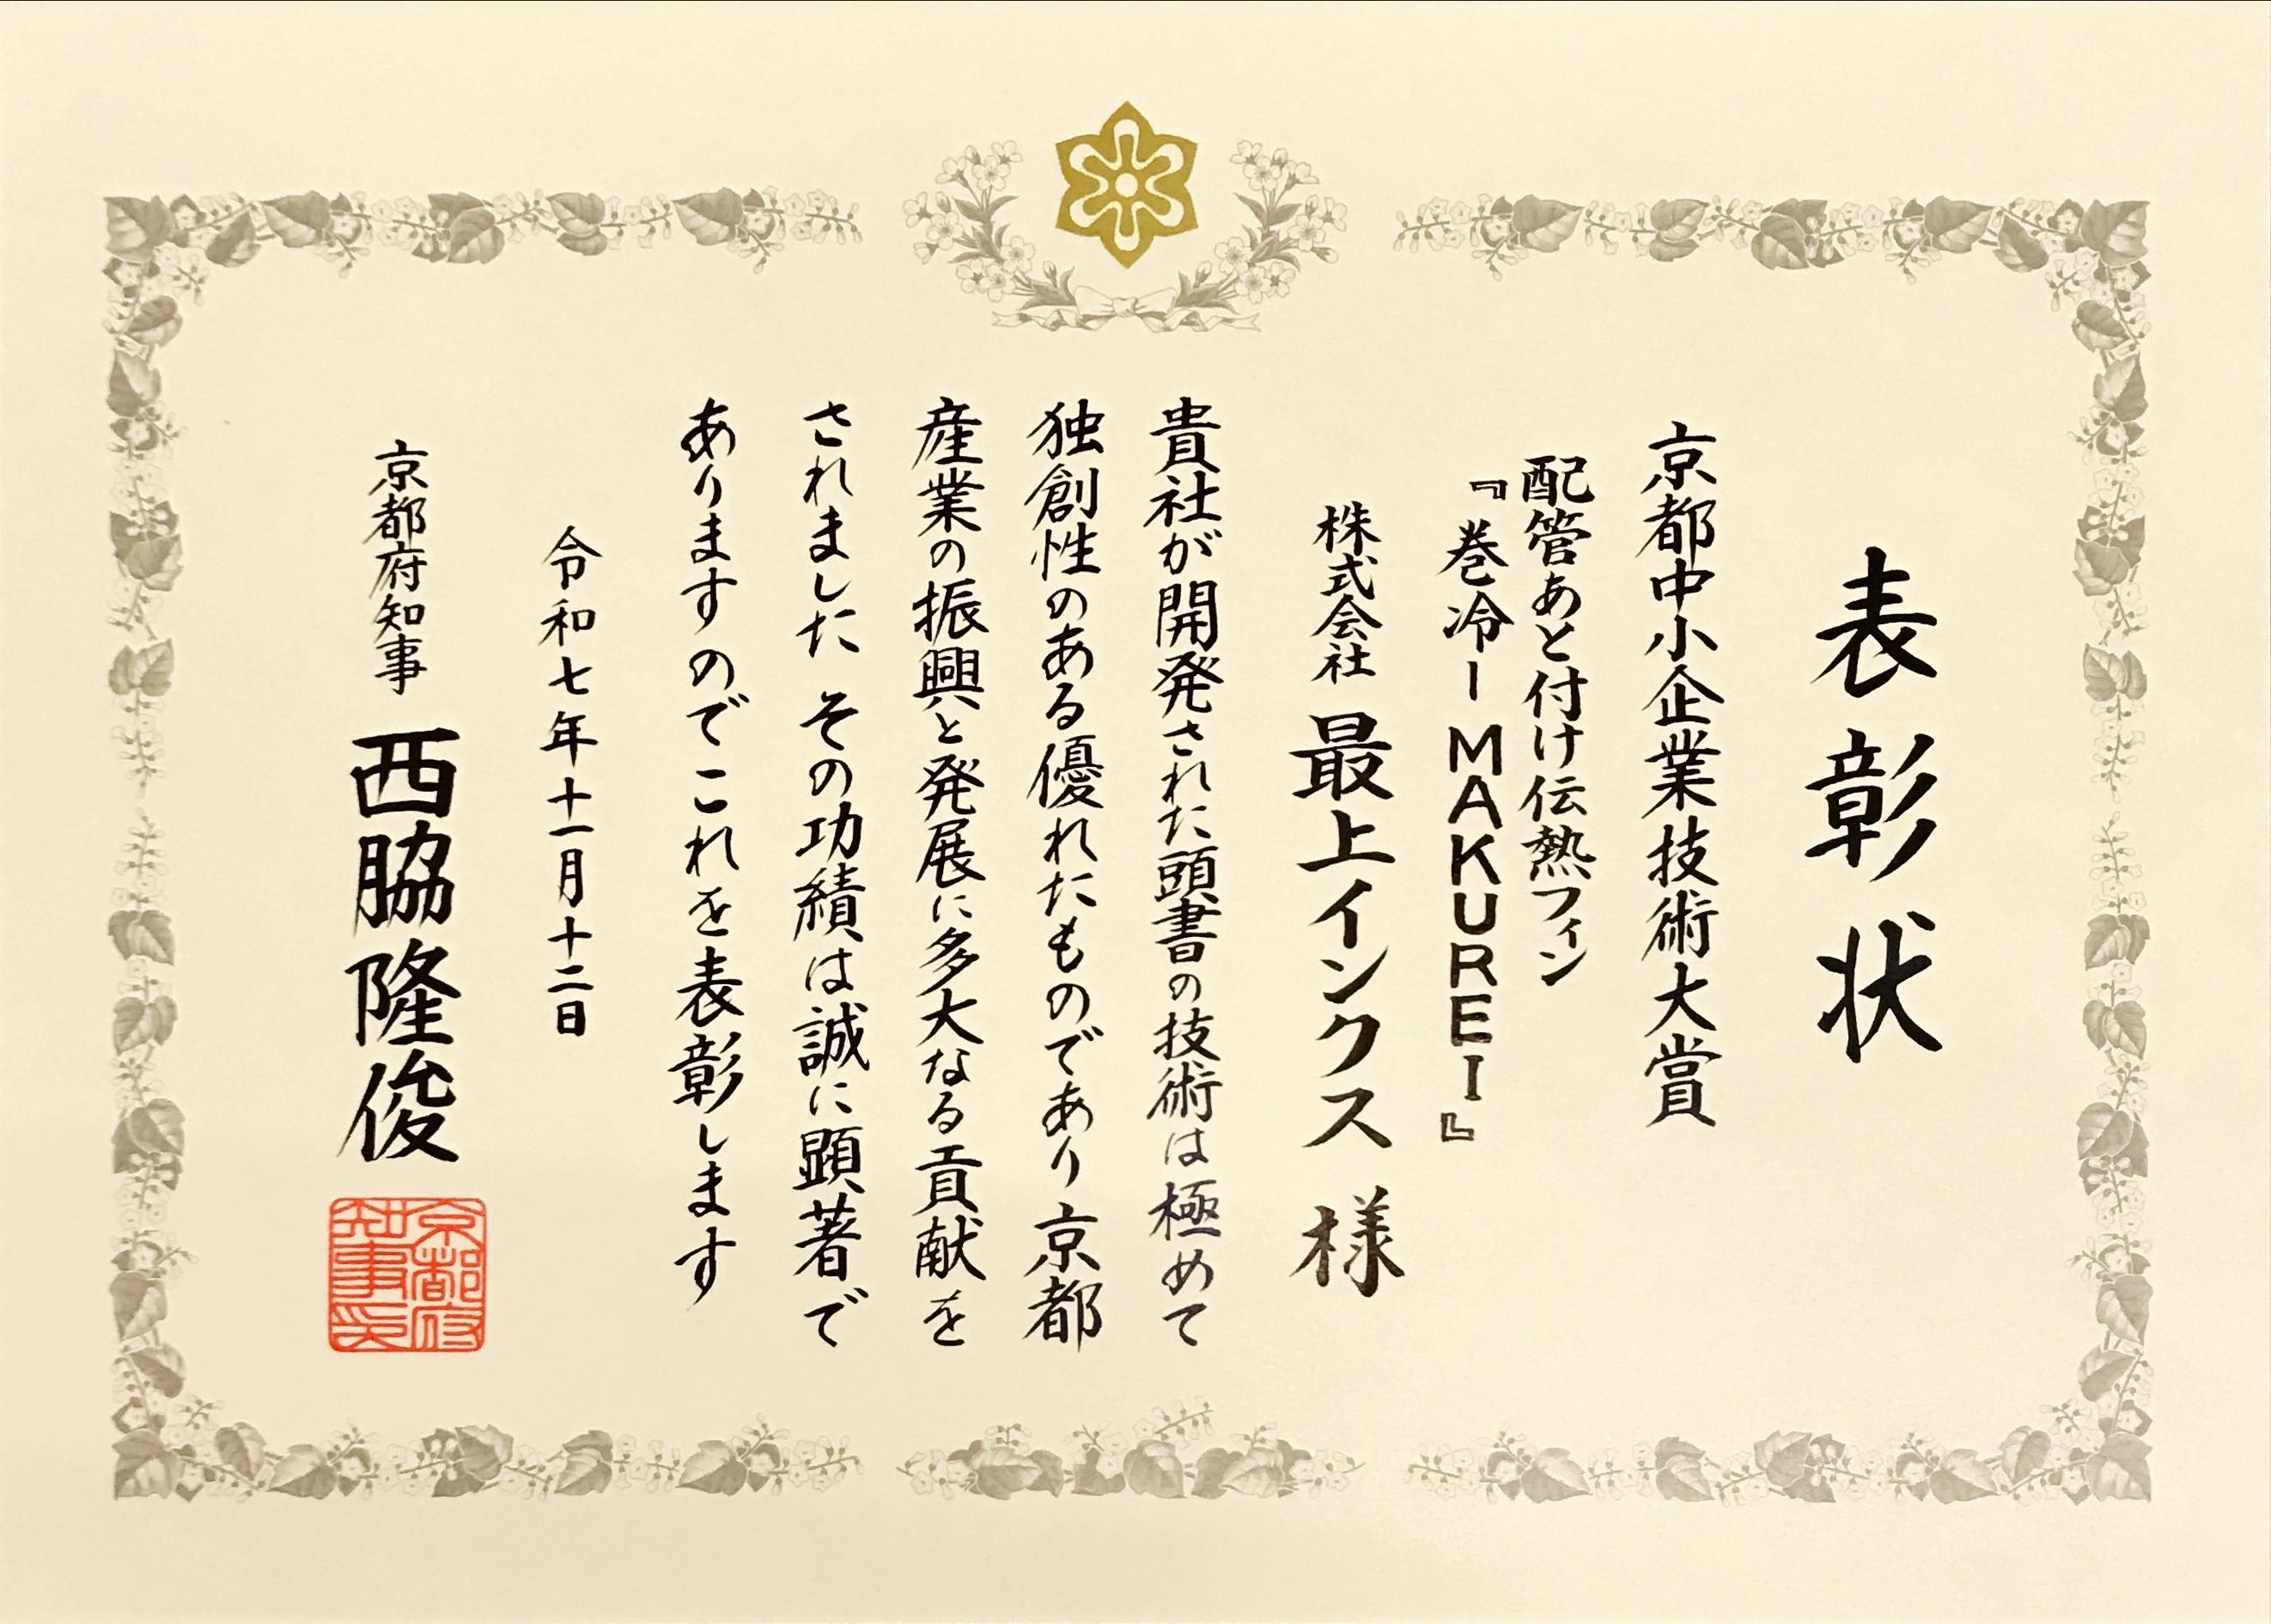 表彰状
京都中小企業技術大賞
配管あと付け伝熱フィン
『巻冷ーMAKUREI』
株式会社 最上インクス 様
貴社が開発された頭書の技術は極めて
独創性のある優れたものであり京都
産業の振興と発展に多大なる貢献を
されました その功績は誠に顕著で
ありますのでこれを表彰します
令和七年十一月十二日
京都府知事 西脇隆俊
京都府
知事印